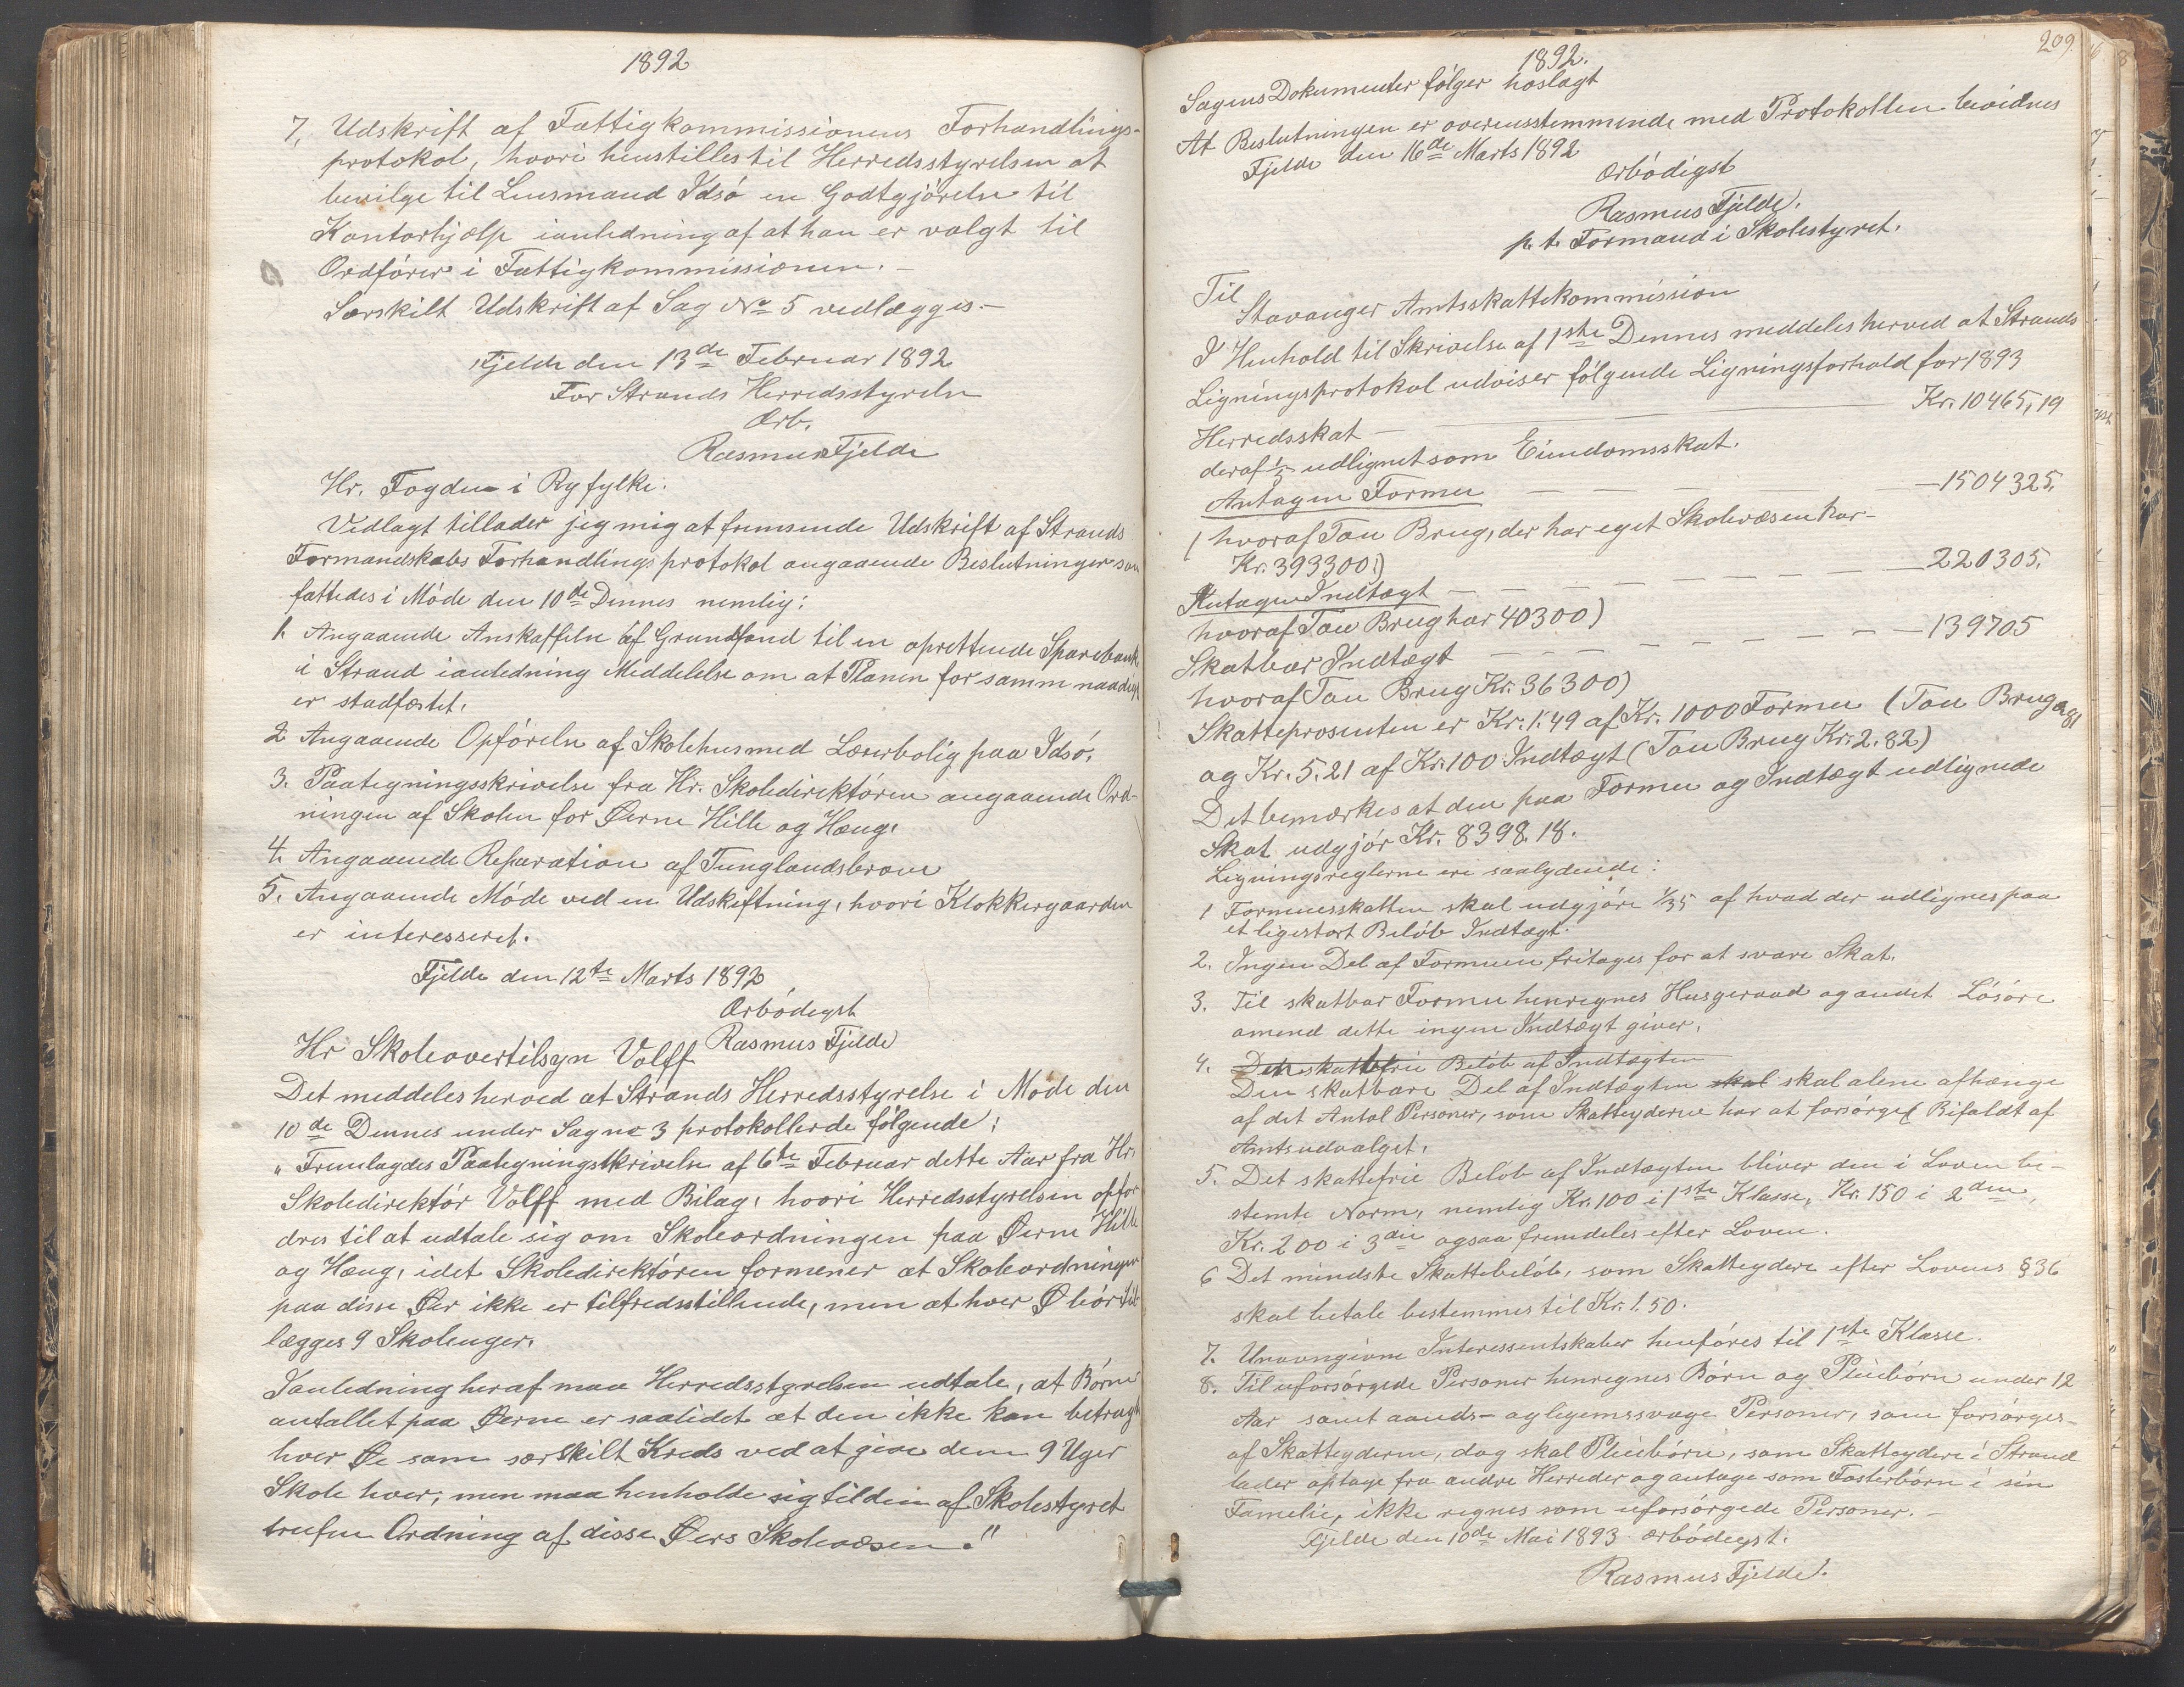 1892
7, Udskrift af Fattigkommissionens Forhandlings-
protokol, hvori henstilles til Herredsstyrelsen at
bevilge til Lensmand Idsö en Godtgjörelse til
Kontorhjælp ianledning af at han er valgt til
Ordförer i Fattigkommissionen. –
Særskilt Udskrift af Sag No 5 vedlægges –
Fjelde den 13de Februar 1892
For Strands Herredsstyrelse
Ærb.
Rasmus Fjelde
Hr. Fogden i Ryfylke.
Vedlagt tillader jeg mig at fremsende Udskrift af Strands
Formandskabs Forhandlingsprotokol angaaende Beslutninger som
fattedes i Möde den 10de Dennes nemlig:
1. Angaaende Anskaffelse af Grundfond til en oprettende Sparebank
i Strand ianledning Meddelelse om at Planen for samme naadigst
er stadfæstet.
2 Angaaende Opförelse af Skolehus med Lærerbolig paa Idsö.
3. Paategningsskrivelse fra Hr. Skoledirektören angaaende Ord-
ningen af Skolen for Öerne Hille og Hæng.
4. Angaaende Reparation af Tunglandsbroen
5. Angaaende Möde ved en Udskiftning, hvori Klokkergaarden
er interesseret.
Fjelde den 12te Marts 1892
Ærbödigst
Rasmus Fjelde
Hr Skoleovertilsyn Volff
Det meddeles herved at Strands Herredsstyrelse i Möde den
10de Dennes under Sag no 3 protokollerede fölgende:
"Fremlagdes Paategningsskrivelse af 6te Februar dette Aar fra Hr.
Skoledirektör Volff med Bilag, hvori Herredsstyrelsen opfor
dres til at udtale sig om Skoleordningen paa Öerne Hille
og Hæng, idet Skoledirektören formener at Skoleordningen
paa disse Öer ikke er tilfredsstillende, men at hver Ö bör til
lægges 9 Skoleuger.
Ianledning heraf maa Herredsstyrelsen udtale, at Börne
antallet paa Öerne er saa lidet at den ikke kan betragte
hver Öe som særskilt Kreds ved at give dem 9 Uger
Skole hver, men maa henholde sig til den af Skolestyret
trufne Ordning af disse Öers Skolevæsen."
209
1892.
Sagens Dokumenter fölger hoslagt
At Beslutningen er overensstemmende med Protokollen bevidnes
Fjelde den 16de Marts 1892
Ærbödigst
Rasmus Fjelde.
p. t. Formand i Skolestyret.
Til
Stavanger Amtsskattekommission
I Henhold til Skrivelse af 1ste Dennes meddeles herved at Strands
Ligningsprotokol udviser fölgende Ligningsforhold for 1893
Herredsskat – Kr. 10465,19
deraf 1/5 udlignet som Eiendomsskat.
Antagen Formue – – – 1504325,
(hvoraf Tou Brug, der har eget Skolevæsen har –
Kr. 393300.)
Antagen Indtægt – – – – – – 220305.
hvoraf Tou Brug har 40300)
Skatbar Indtægt – – – – – – 139705
hvoraf Tou Brug Kr. 36300)
Skatteprosenten er Kr. 1.49 af Kr. 1000 Formue (Tou Brug 0,81
og Kr. 5.21 af Kr. 100 Indtægt (Tou Brug Kr. 2.82)
Det bemærkes at den paa Formue og Indtægt udlignede
Skat udgjör Kr. 8398.18.
Ligningsreglerne ere saalydende:
1 Formuesskatten skal udgjöre 1/35 af hvad der udlignes paa
et ligestort Belöb Indtægt.
2. Ingen Del af Formuen fritages for at svare Skat.
3. Til skatbar Formue henregnes Husgeraad og andet Lösöre
omend dette ingen Indtægt giver.
4. Den skattefrie Belöb af Indtægten
Den skatbare Del af Indtægten skal skal alene afhænge
af det Antal Personer, som Skatteyderne har at forsörge (Bifaldt af
Amtsudvalget.
5. Det skattefrie Belöb af Indtægten bliver den i Loven be-
stemte Norm, nemlig Kr. 100 i 1ste Klasse, Kr. 150 i 2den,
Kr. 200 i 3die ogsaa fremdeles efter Loven.
6 Det mindste Skattebelöb, som Skatteydere efter Lovens § 36
skal betale bestemmes til Kr. 1.50.
7. Unavngivne Interessentskaber henföres til 1ste Klasse.
8. Til uforsörgede Personer henregnes Börn og Pleiebörn under 12
Aar samt aands- og legemssvage Personer, som forsörges
af Skatteyderne, dog skal Pleiebörn, som Skatteydere i Strand
lader optage fra andre Herreder og antage som Fosterbörn i sin
Familie, ikke regnes som uforsörgede Personer. –
Fjelde den 10de Mai 1893 Ærbödigst.
Rasmus Fjelde.